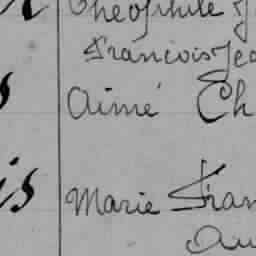 Théophile
François Jea
s
Aimé Ch
is
Marie Fran
Au